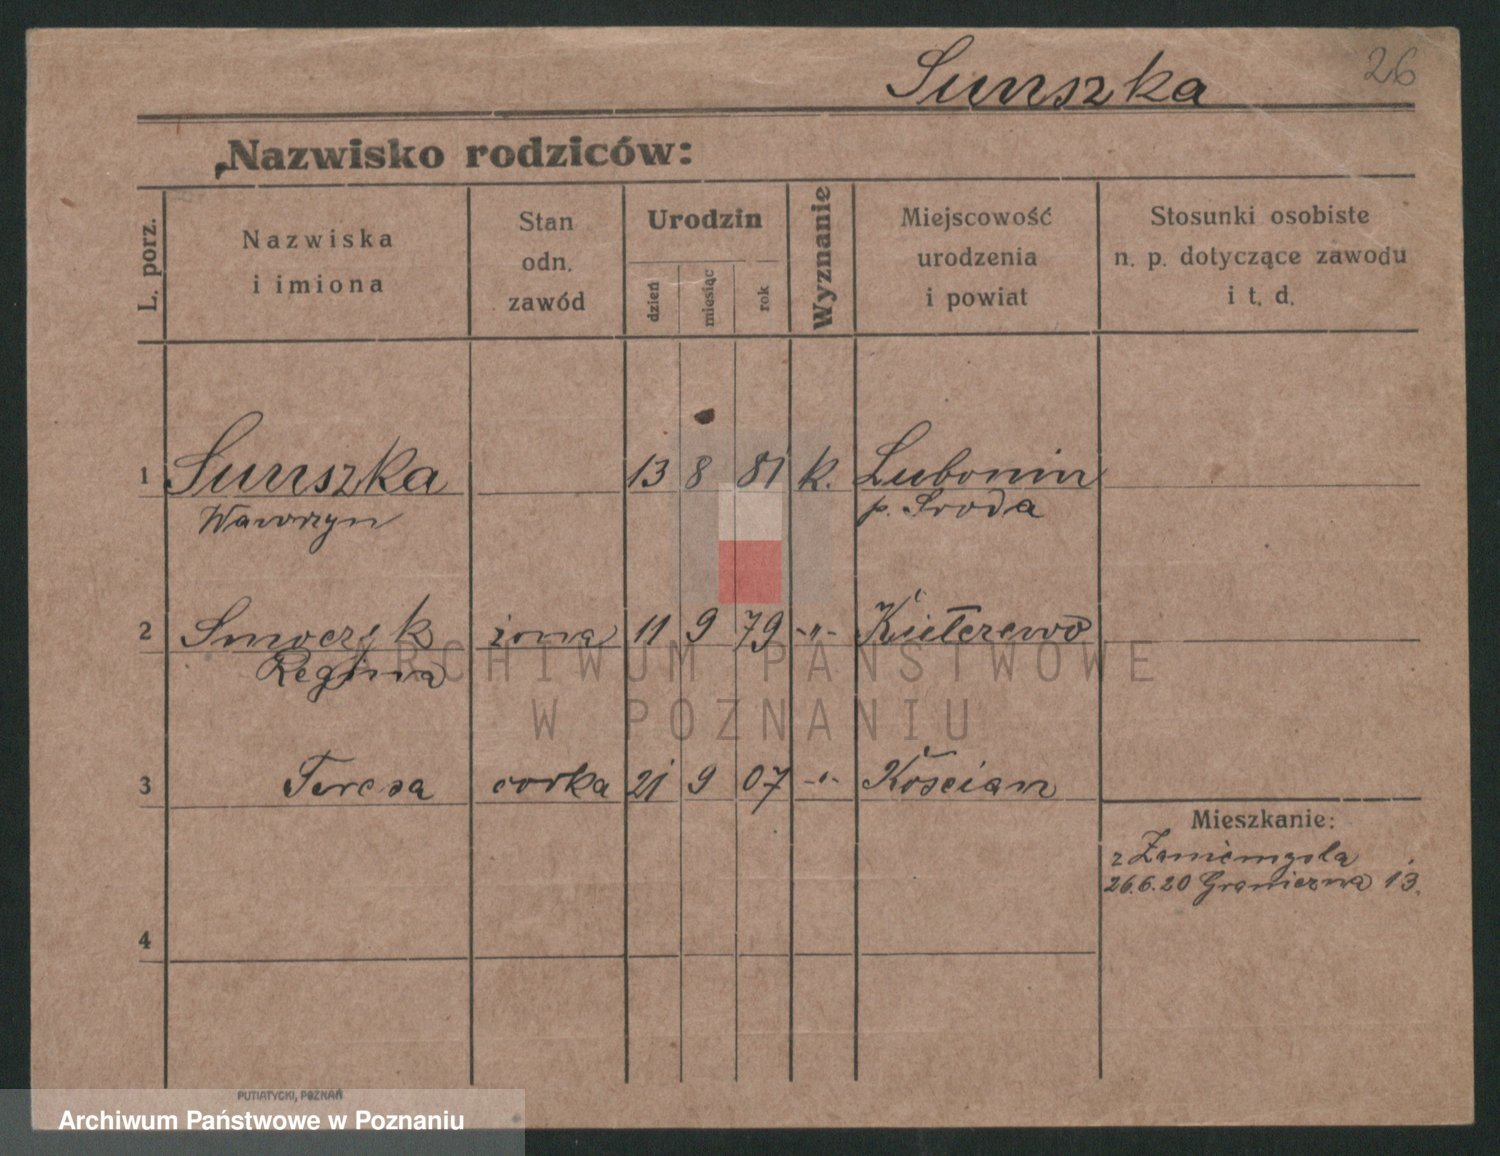 Sunszka 26
Nazwisko rodziców:
L. porz.
Nazwiska
i imiona
Stan
odn.
zawód
Urodzin
dzień
miesiąc
rok
Wyznanie
Miejscowość
urodzenia
i powiat
Stosunki osobiste
n. p. dotyczące zawodu
i t. d.
1 Sunszka 13 8 81 k. Lubonin
Wawrzyn p. Sroda
2 Smoczyk żona 11 9 79 -"-
Regina
3 Teresa corka 21 9 07 -"- Kościan
Mieszkanie:
z Zaniemysla
26.6.20 Graniczna 13.
4
ARCHIWUM PAŃSTWOWE
W POZNANIU
PUTIATYCKI, POZNAŃ
Archiwum Państwowe w Poznaniu